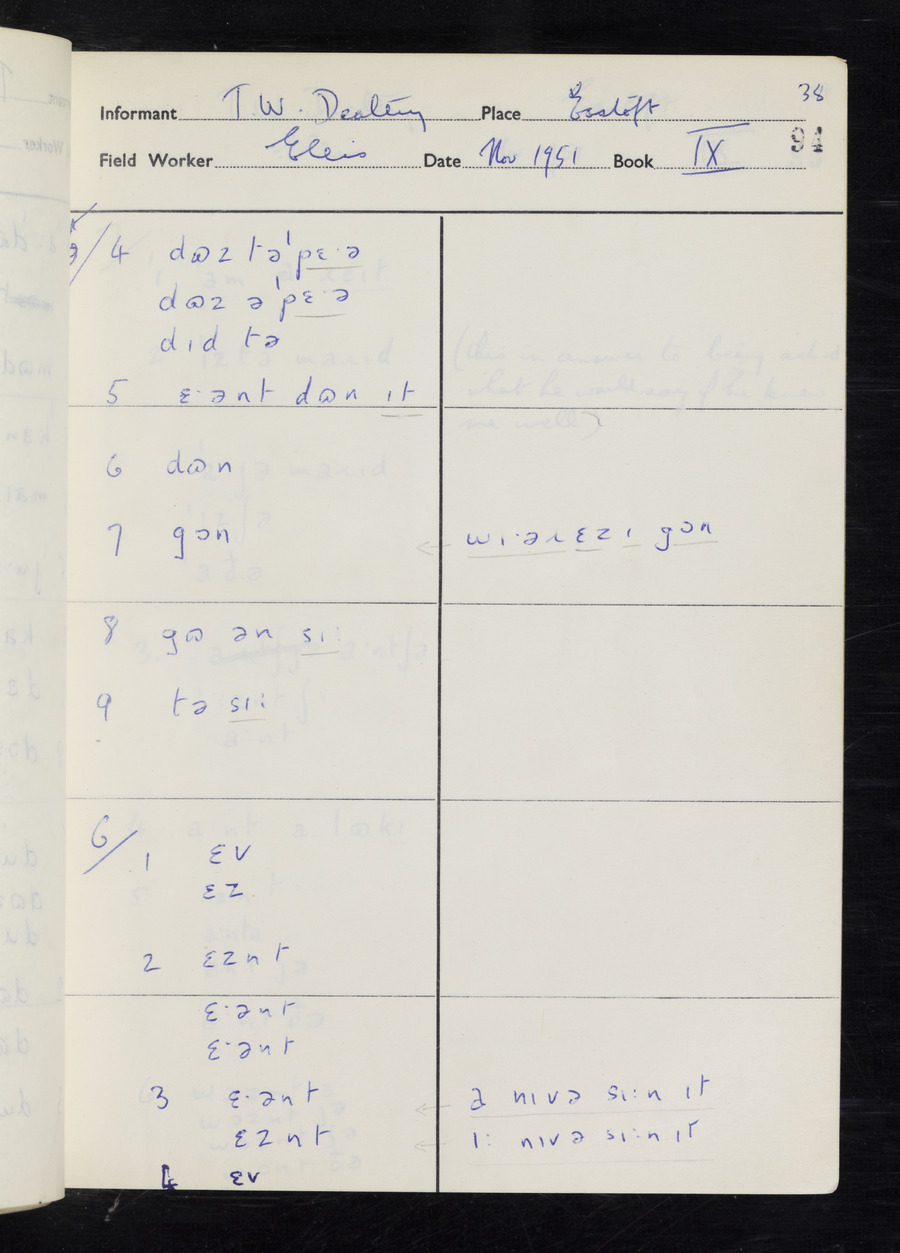 38
Informant T.W. Place
Field Worker Ellis Date Nov 1951 Book IX 94
4 dɷz tə ˈpɛ·ə
dɷz ə ˈpɛ·ə
dɪd tə
5 ɛ·ənt dɷn ɪt
6 dɷn
7 gɔn ← wɪ·ər ɛz ɪ gɔn
8 gɷ ən sɪ:
9 tə sɪ:
6/ 1 ɛv
ɛz
2 ɛznt
ɛ·ənt
ɛ·ənt
3 ɛ·ənt ← ə nɪvə sɪ:n ɪt
ɛznt ← ɪ: nɪvə sɪ:n ɪt
4 ɛv